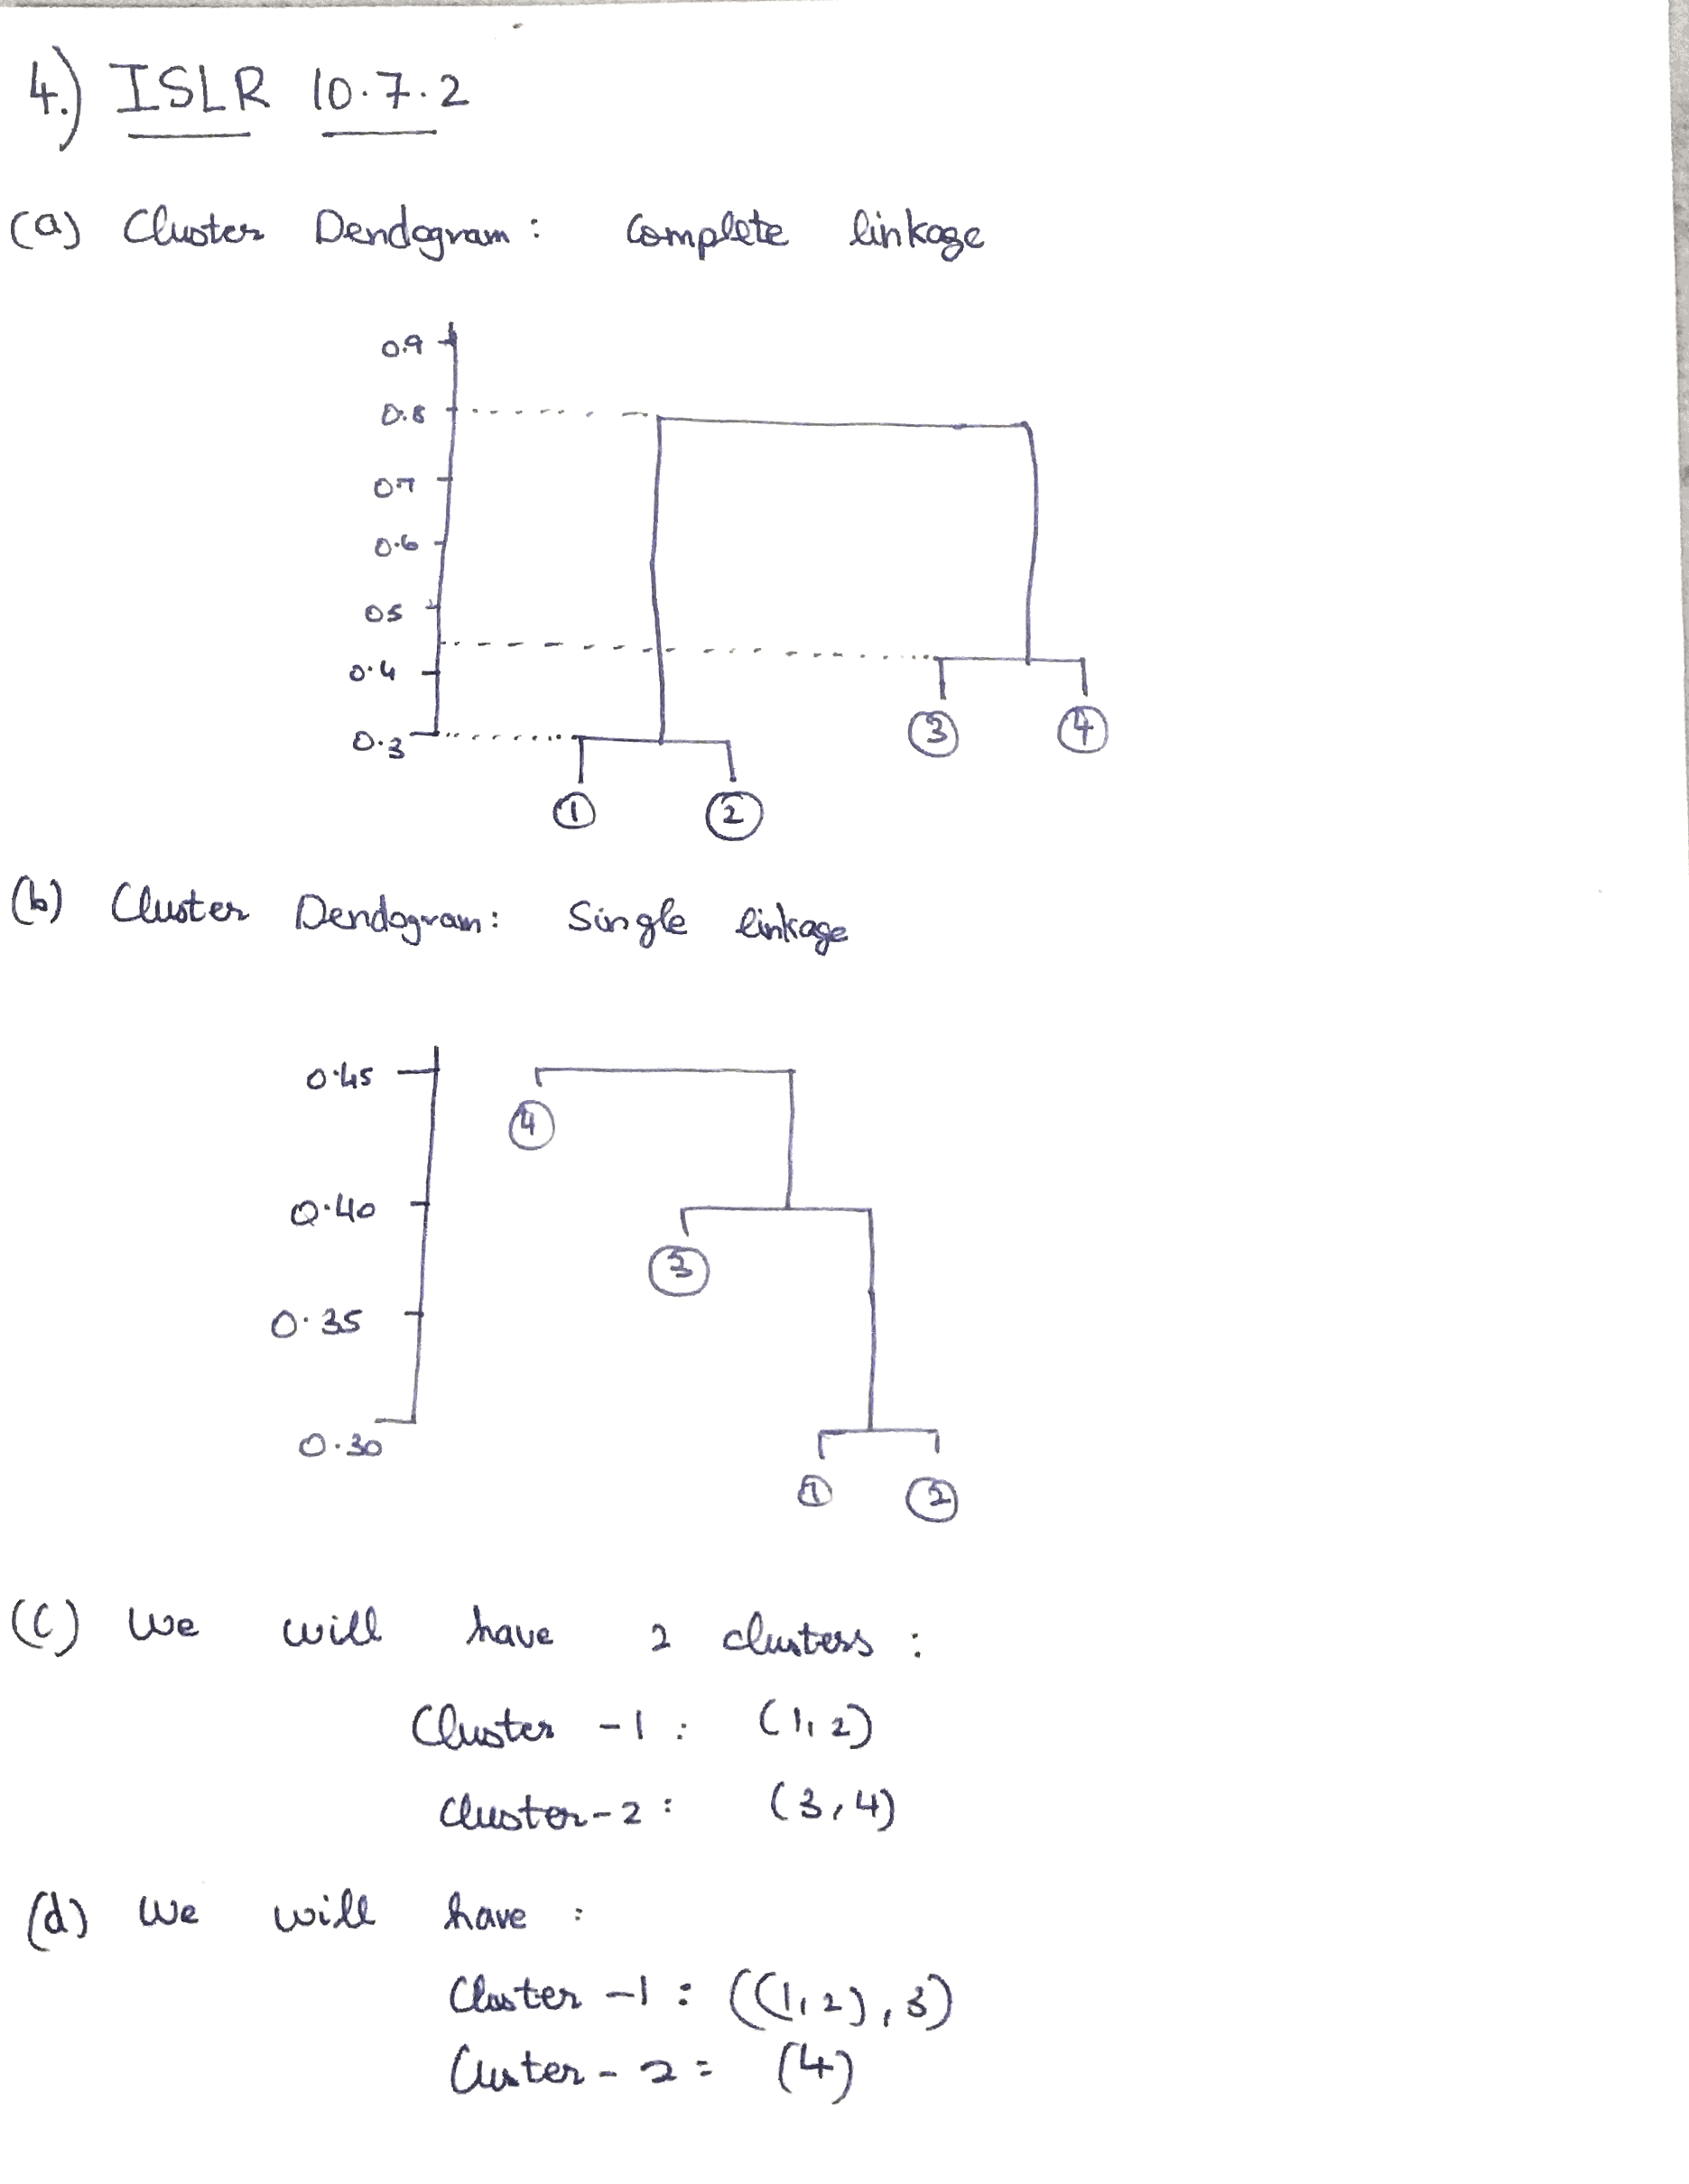 4.) ISLR 10.7.2
(a) Cluster Dendogram : Complete linkage
0.9
0.8
0.7
0.6
0.5
0.4
0.3
3 4
1 2
(b) Cluster Dendogram: Single linkage
0.45
4
0.40
3
0.35
0.30
1 2
(c) We will have 2 clusters :
Cluster -1 : (1,2)
Cluster-2 : (3,4)
(d) We will have :
Cluster -1 : ((1,2),3)
Cluster - 2 = (4)